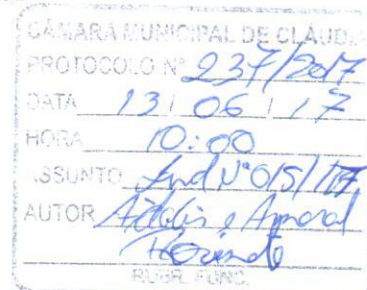 CÂMARA MUNICIPAL DE CLÁUDIA
PROTOCOLO Nº 237/2017
DATA 13 / 06 / 17
HORA 10:00
ASSUNTO Ind Nº 015/17
AUTOR
RUBR. FUNC.